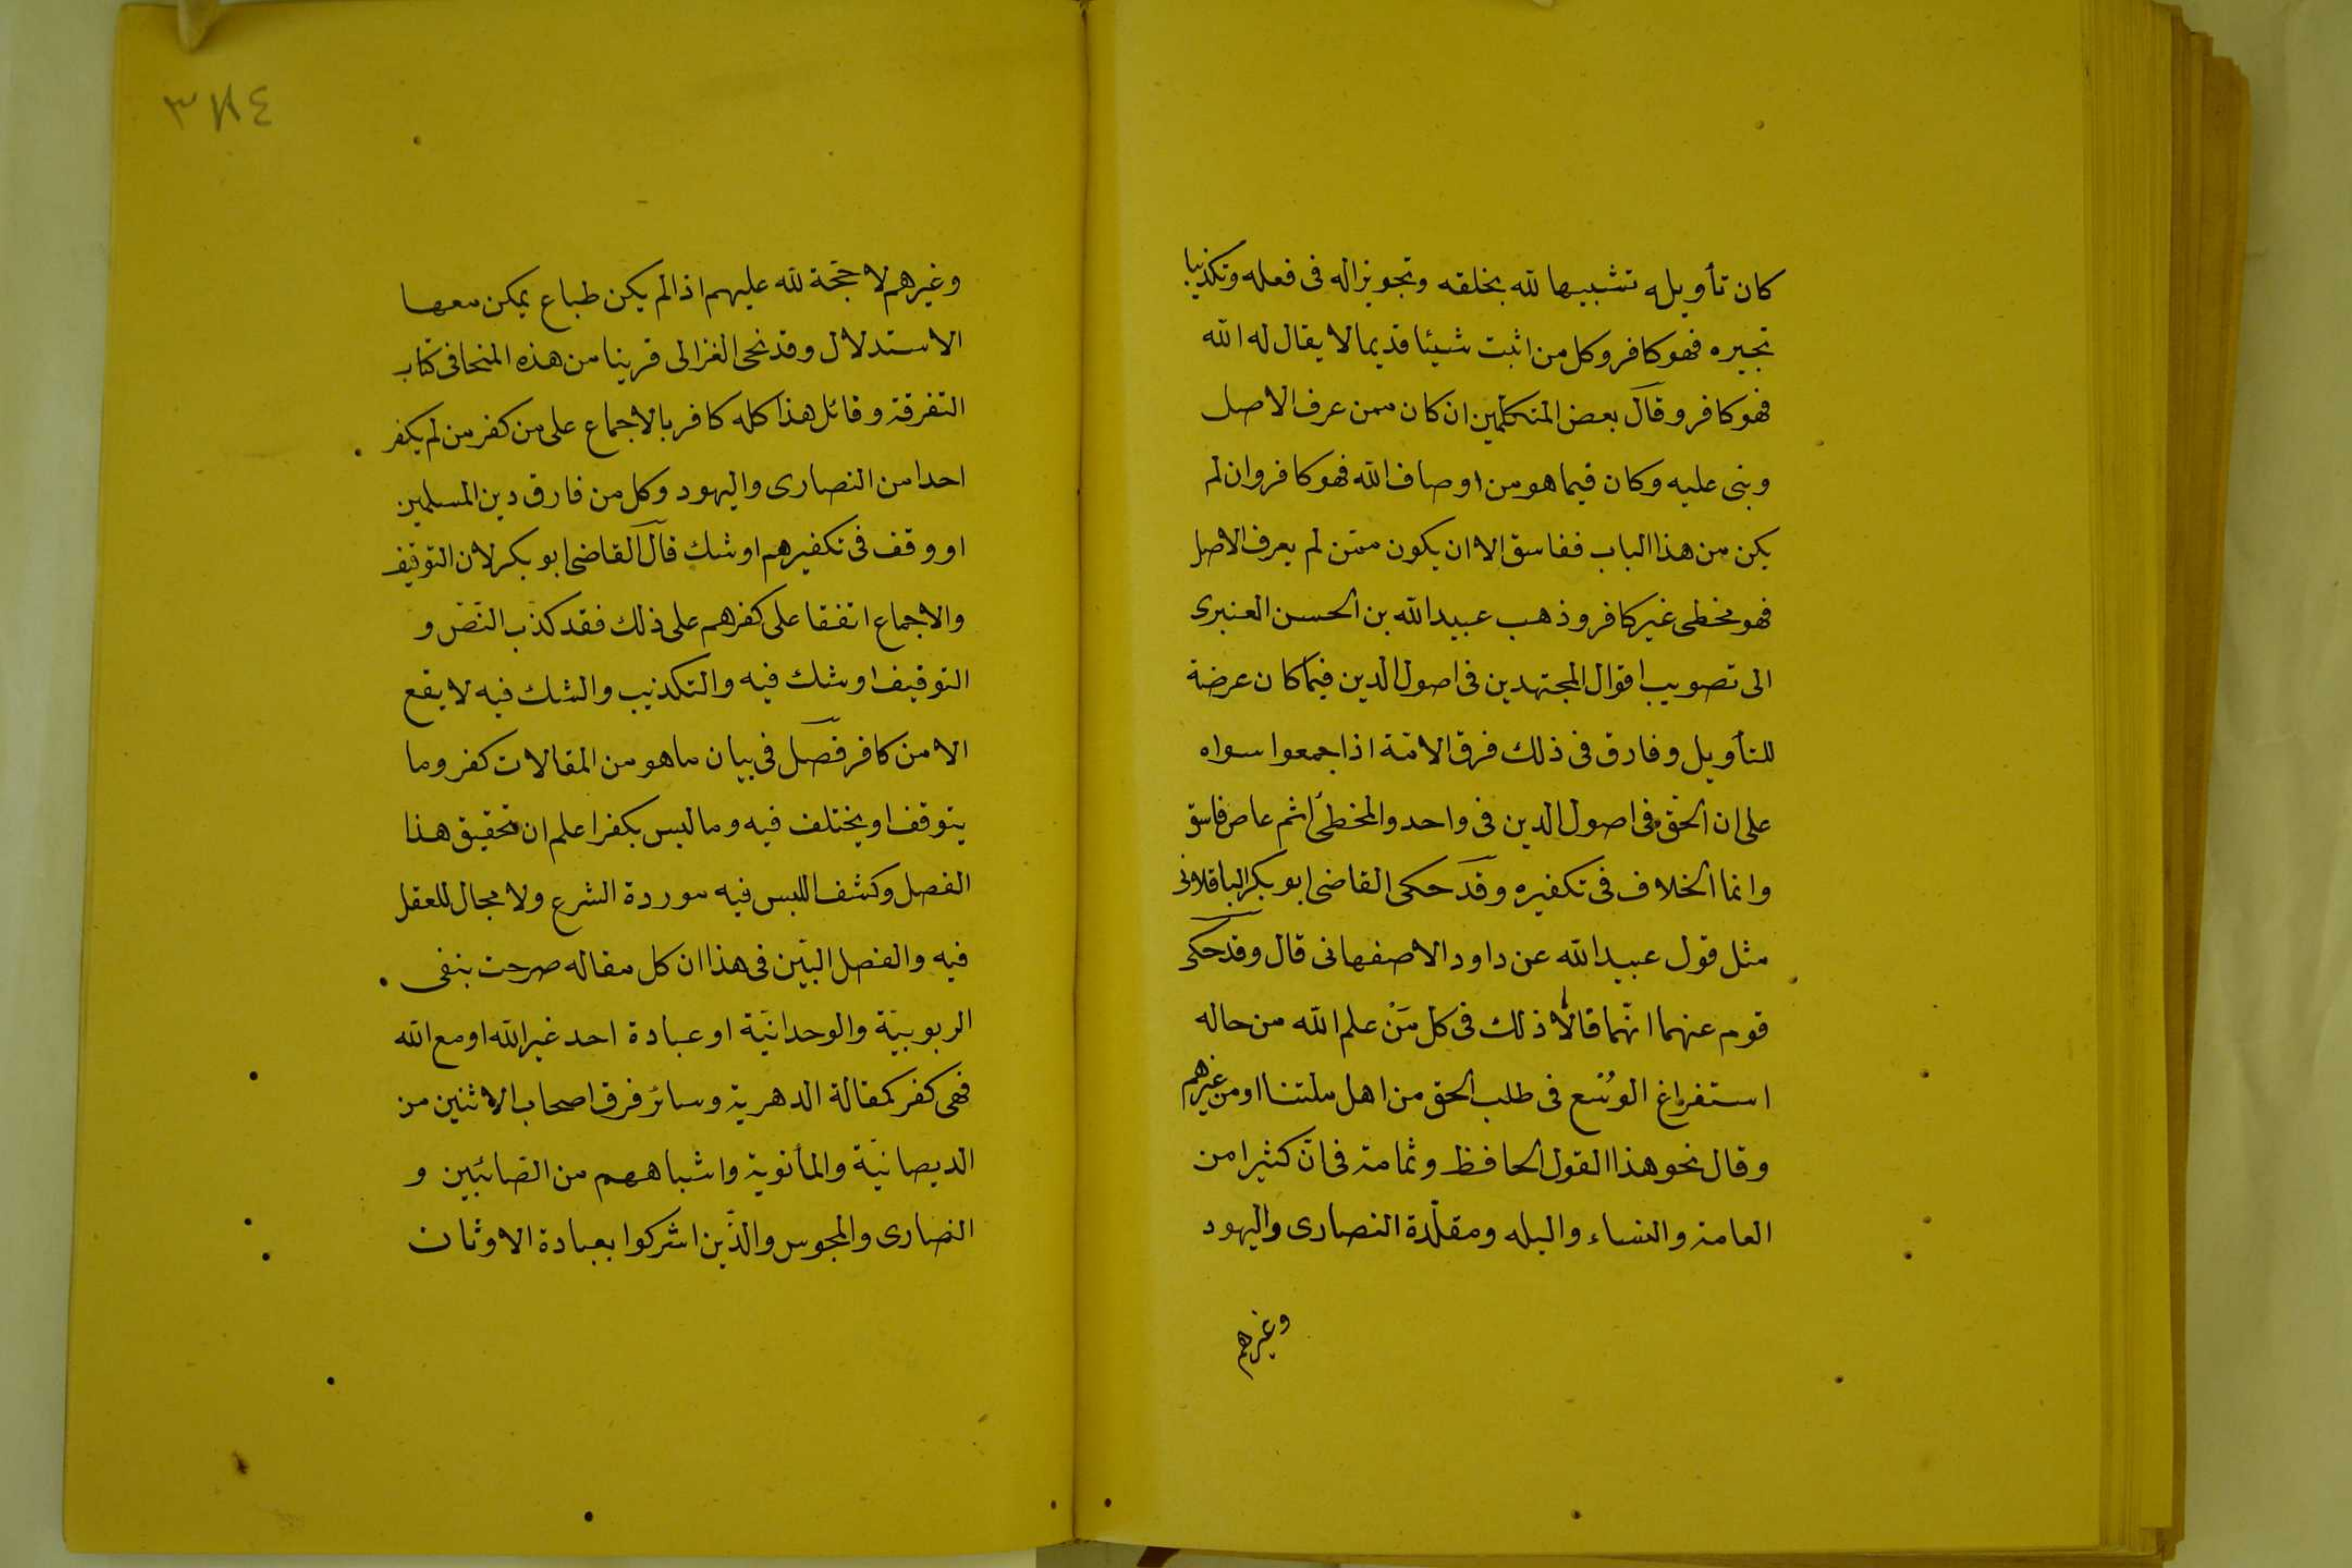 كان تأويله تشبيها لله بخلقه وتجويزا له فى فعله وتكذيبا
تجيره فهو كافر وكل من اثبت شيئا قديما لا يقال له الله
فهو كافر وقال بعض المتكلمين ان كان ممن عرف الاصل
وبنى عليه وكان فيما هو من اوصاف الله فهو كافر وان لم
يكن من هذا الباب ففاسق الا ان يكون ممّن لم يعرف الاصل
فهو مخطى غير كافر وذهب عبيد الله بن الحسن العنبرى
الى تصويب اقوال المجتهدين فى اصول الدين فيما كان عرضة
للتأويل وفارق فى ذلك فرق الامّة اذا جمعوا سواه
على ان الحقّ فى اصول الدين فى واحد والمخطئ اثم عاص فاسق
وانما الخلاف فى تكفيره وقد حكى القاضى ابو بكر الباقلانى
مثل قول عبيد الله عن داود الاصفهانى قال وقد حكى
قوم عنهما انّهما قالا ذلك فى كل مَنْ علم الله من حاله
استفراغ الوُسْع فى طلب الحق من اهل ملتنا او من غيرهم
وقال نحو هذا القول الحافظ وثمامة فى انّ كثيرا من
العامة والنساء والبله ومقلّدة النصارى واليهود
وغيرهم
٣٨٤
وغيرهم لا حجّة لله عليهم اذ الم يكن طباع يمكن معها
الاستدلال وقد نحى الغزالى قرينا من هذه المنحا فى كتاب
التفرقة وقائل هذا كله كافر بالاجماع على من كفر من لم يكفر
احدا من النصارى واليهود وكل من فارق دين المسلمين
او وقف فى تكفيرهم او شك قال القاضى ابو بكر لان التوقيف
والاجماع اتفقا على كفرهم على ذلك فقد كذّب النّصّ و
التوقيف او شك فيه والتكذيب والشك فيه لا يقع
الا من كافر فصل فى بيان ما هو من المقالات كفر وما
يتوقف او يختلف فيه وما ليس بكفر اعلم ان تحقيق هذا
الفصل وكشف اللبس فيه موردة الشرع ولا مجال للعقل
فيه والفصل البيّن فى هذا ان كل مقاله صرحت بنفى
الربوبيّة والوحدانيّة او عبادة احد غير الله او مع الله
فهى كفر كمقالة الدهرية وسائر فرق اصحاب الاثنين من
الديصانيّة والمانوية واشباههم من الصّائبين و
النصارى والمجوس والذّين اشركوا بعبادة الاوثان